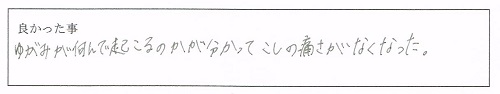 良かった事
ゆがみが何んで起こるのかが分かってこしの痛さがなくなった。